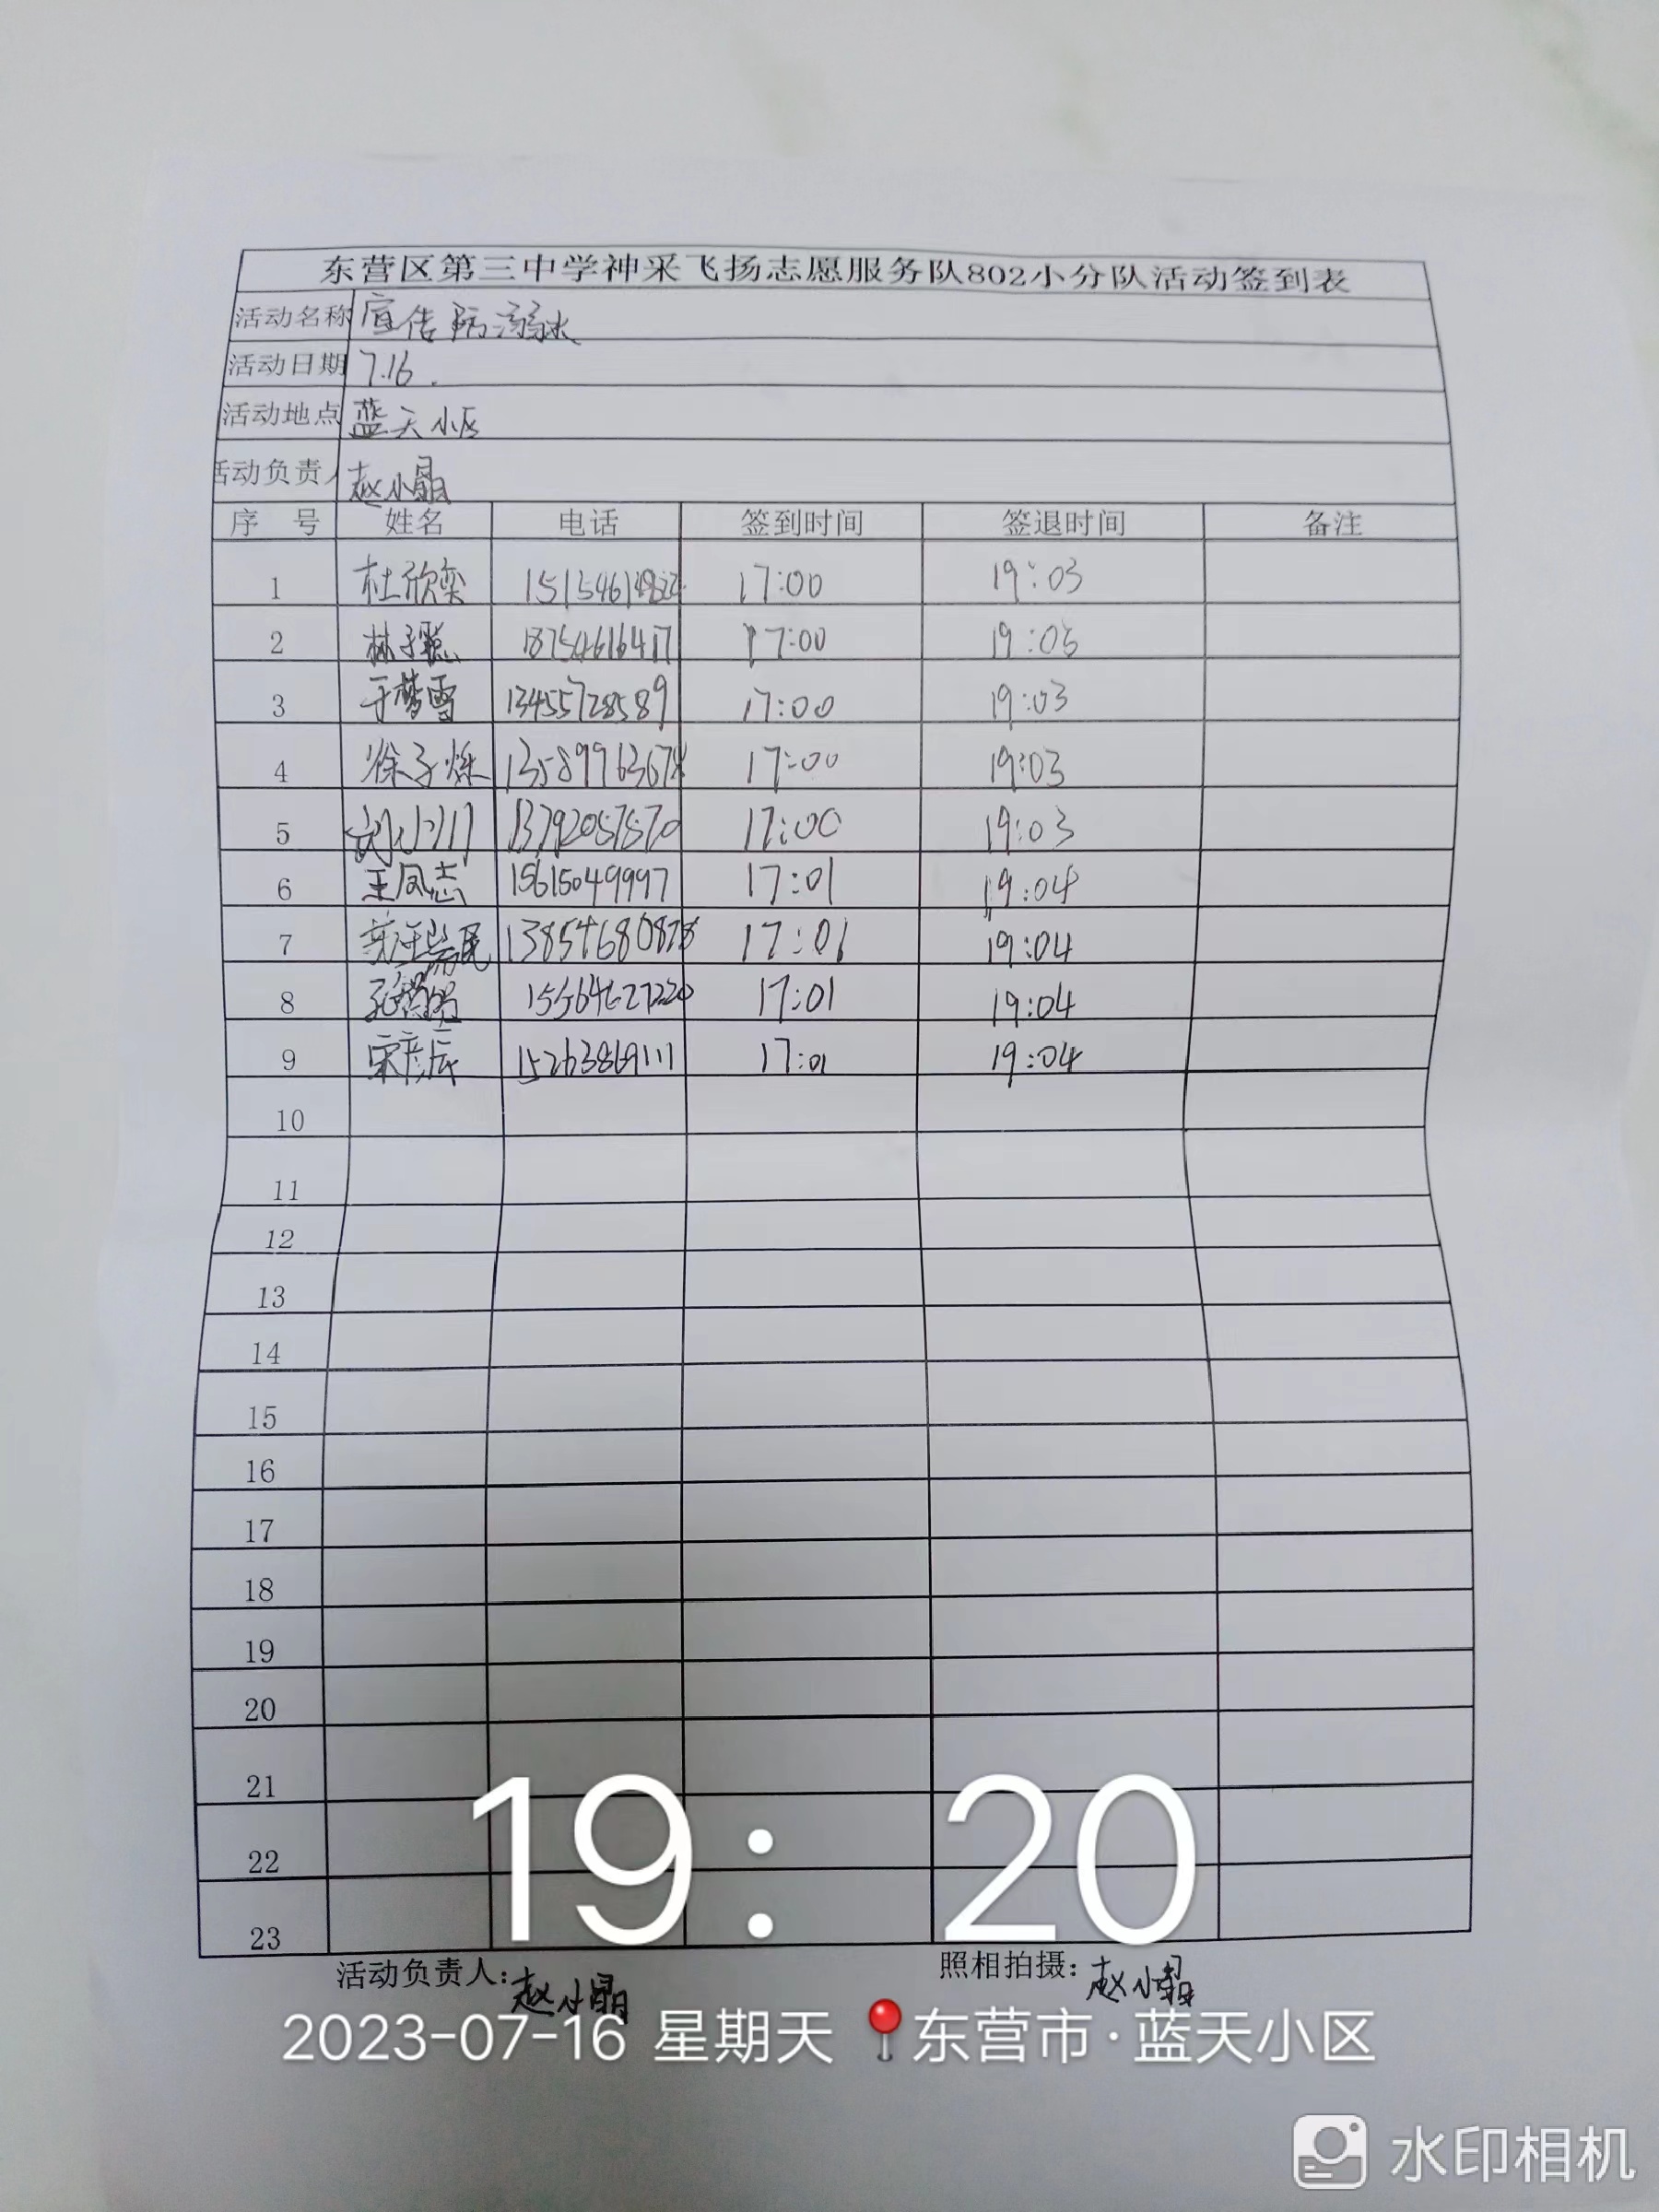 东营区第三中学神采飞扬志愿服务队802小分队活动签到表
活动名称 宣传防溺水
活动日期 7.16.
活动地点 蓝天小区
活动负责人 赵小晶
序 号 姓名 电话 签到时间 签退时间 备注
1 杜欣栾 17:00 19:03
2 林子聪 18754616417 17:00 19:03
3 于梦雪 13455728589 17:00 19:03
4 徐子烁 17:00 19:03
5 13792057570 17:00 19:03
6 王凤志 15615049997 17:01 19:04
7 17:01 19:04
8 15564627220 17:01 19:04
9 宋彦辰 15263869111 17:01 19:04
10
11
12
13
14
15
16
17
18
19
20
21
22
23
19:20
活动负责人:赵小晶 照相拍摄:赵小晶
2023-07-16 星期天 东营市·蓝天小区
水印相机